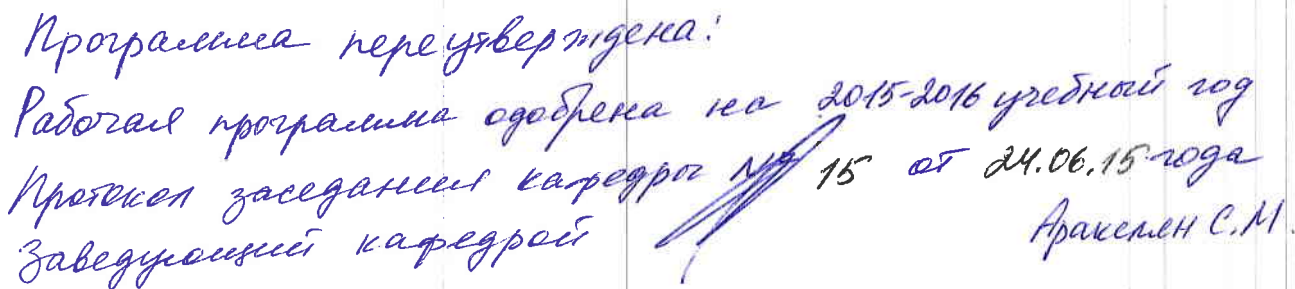 Программа переутверждена:
Рабочая программа одобрена на 2015-2016 учебный год
Протокол заседания кафедры № 15 от 24.06.15 года
Заведующий кафедрой Аракелян С.М.